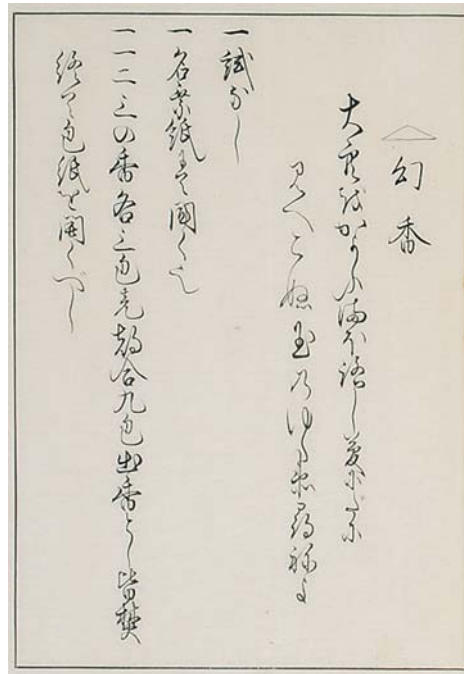 幻香
大空をかよふまほろし夢にたに
見へこぬ玉のゆくゑ尋ねよ
一試なし
一名乗紙にて聞く也
一一二三の香各三包充都合九包出香とし皆焚
終て包紙を開くべし